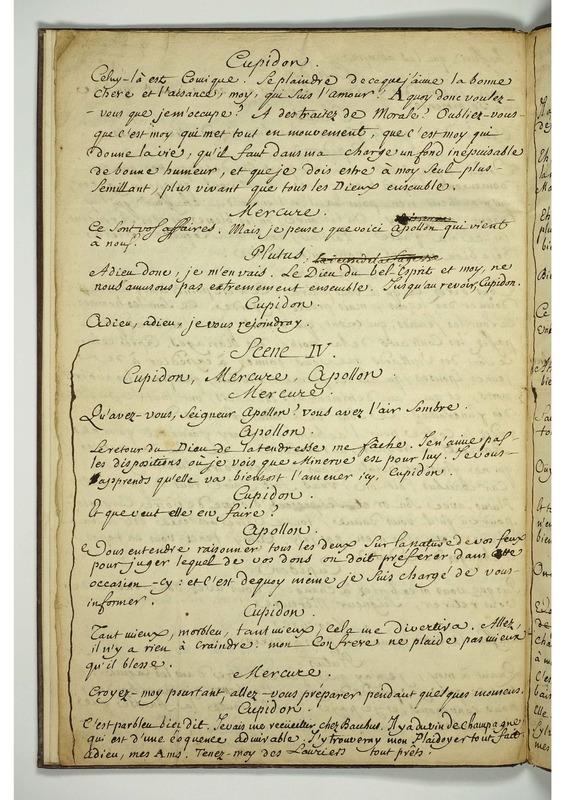 Cupidon.
Celuy-là est Comique! Se plaindre de ce que j'aime la bonne
chere et l'aisance, moy, qui suis l'amour! A quoy donc voulez-
vous que je m'occupe? A des traitez de Morale? Oubliez-vous
que c'est moy qui met tout en mouvement, que c'est moy qui
donne la vie, qu'il faut dans ma charge un fond inépuisable
de bonne humeur, et que je dois estre à moy seul plus
semillant, plus vivant que tous les Dieux ensemble.
Mercure.
Ce sont vos affaires. Mais je pense que voici Apollon qui vient
à nous.
Plutus.
Adieu donc, je m'en vais. Le Dieu du bel Esprit et moy, ne
nous amusons pas extremement ensemble. Jusqu'au revoir, Cupidon.
Cupidon.
Adieu, adieu, je vous rejoindray.
Scene IV.
Cupidon, Mercure, Apollon.
Mercure.
Qu'avez-vous, Seigneur Apollon? vous avez l'air sombre.
Apollon.
Le retour du Dieu de la tendresse me fâche. Je n'aime pas
les dispositions où je vois que Minerve est pour luy. Je vous
apprends qu'elle va bientost l'amener icy, Cupidon.
Cupidon.
Et que veut elle en faire?
Apollon.
Vous entendre raisonner tous les deux sur la nature de vos feux
pour juger lequel de vos dons on doit préferer dans cette
occasion-cy: et c'est dequoy même je suis chargé de vous
informer.
Cupidon.
Tant mieux, morbleu, tant mieux; cela me divertira. Allez,
il n'y a rien à craindre: mon Confrere ne plaide pas mieux
qu'il blesse.
Mercure.
Croyez-moy pourtant, allez-vous préparer pendant quelques momens.
Cupidon.
C'est parbleu bien dit. Je vais me recueillir chez Bacchus. Il y a du vin de champagne
qui est d'une éloquence admirable. J'y trouveray mon Plaidoyer tout fait.
adieu, mes Amis. Tenez-moy des Lauriers tout prêts.